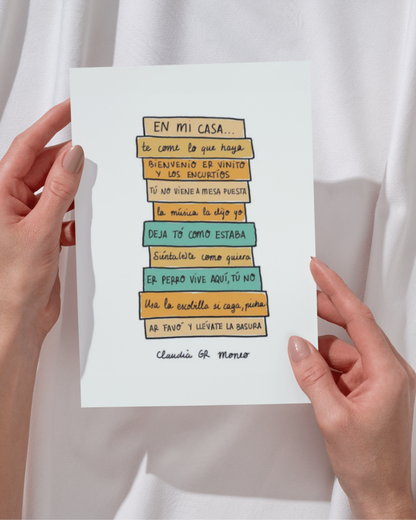 EN MI CASA...
te come lo que haya
BIENVENÍO ER VINITO
Y LOS ENCURTÍOS
TÚ NO VIENE A MESA PUESTA
la música la elijo yo
DEJA TÓ COMO ESTABA
Siénta(e)te como quiera
ER PERRO VIVE AQUÍ, TÚ NO
Usa la escobilla si caga, picha
AR FAVÓ Y LLÉVATE LA BASURA
Claudia GR Moneo